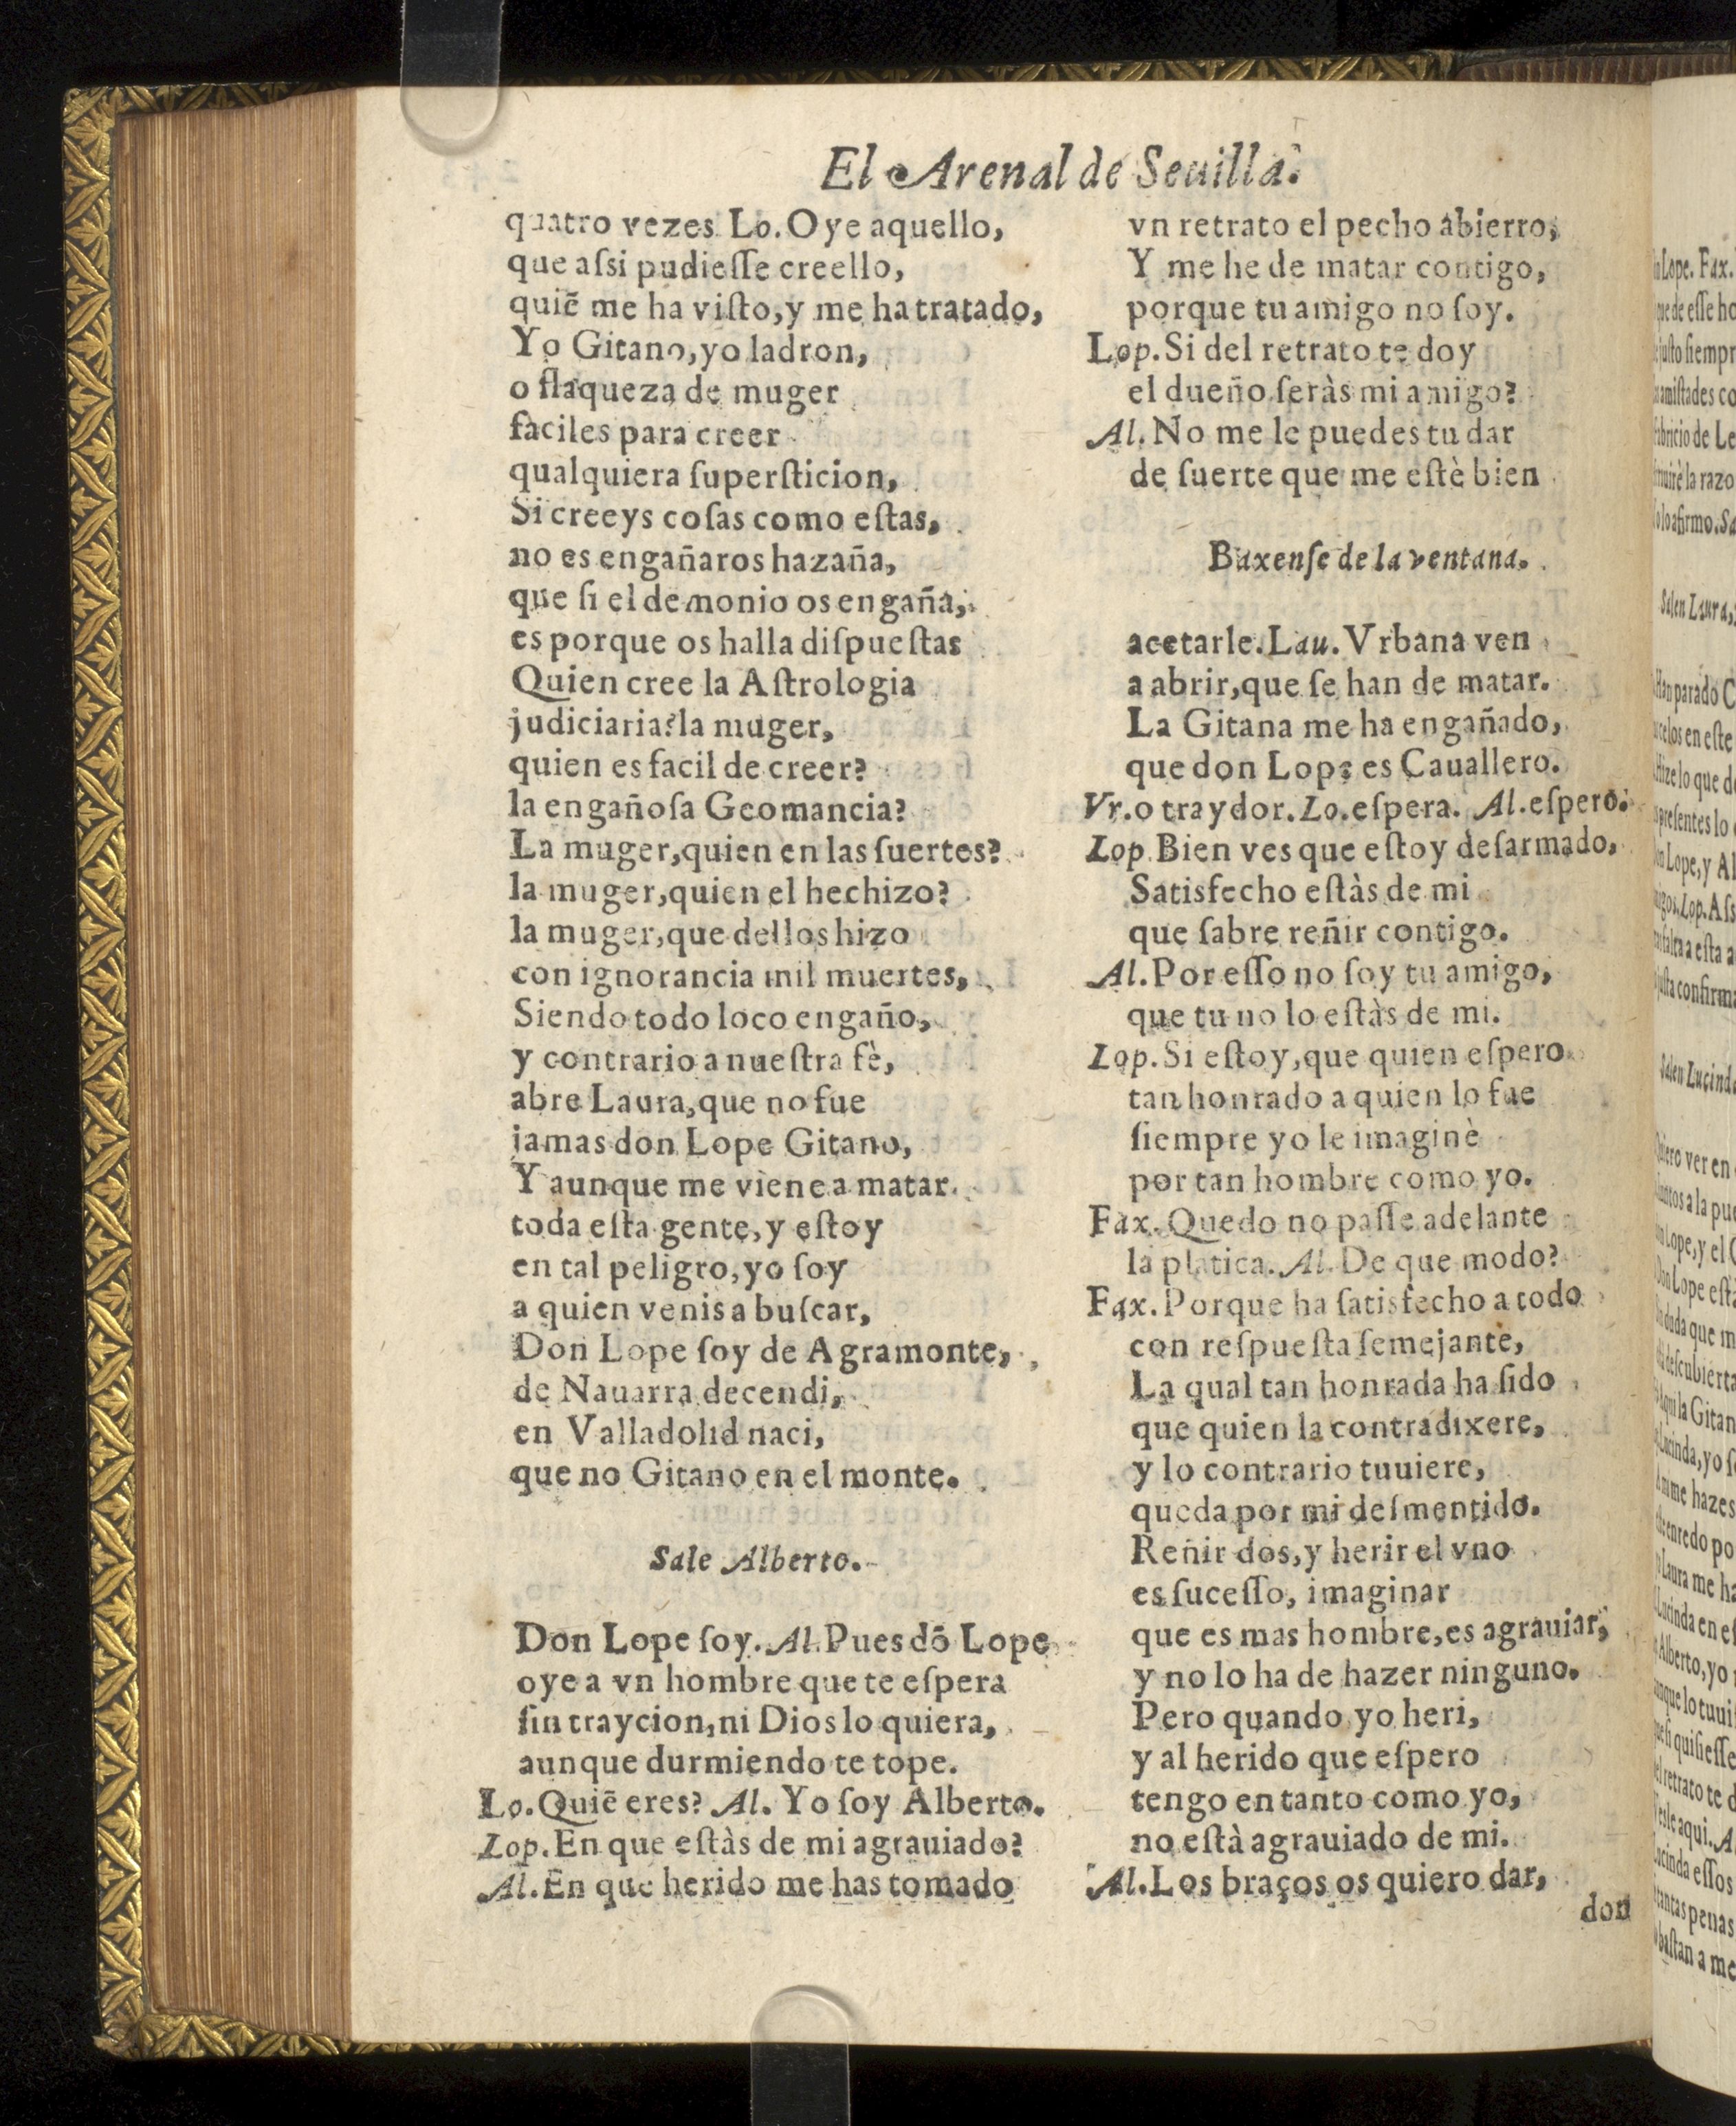 El Arenal de Seuilla.
quatro vezes. Lo. Oye aquello,
que aſsi pudieſſe creello,
quiē me ha viſto, y me ha tratado,
Yo Gitano, yo ladron,
o flaqueza de muger
faciles para creer
qualquiera ſuperſticion,
Si creeys coſas como eſtas,
no es engañaros hazaña,
que ſi el demonio os engaña,
es porque os halla diſpueſtas
Quien cree la Aſtrologia
judiciaria? la muger,
quien es facil de creer?
la engañoſa Geomancia?
La muger, quien en las ſuertes?
la muger, quien el hechizo?
la muger, que dellos hizo
con ignorancia mil muertes,
Siendo todo loco engaño,
y contrario a nueſtra fè,
abre Laura, que no fue
jamas don Lope Gitano,
Y aunque me viene a matar
toda eſta gente, y eſtoy
en tal peligro, yo ſoy
a quien venis a buſcar,
Don Lope ſoy de Agramonte,
de Nauarra decendi,
en Valladolid naci,
que no Gitano en el monte.
Sale Alberto.
Don Lope ſoy. Al. Pues dō Lope
oye a vn hombre que te eſpera
ſin traycion, ni Dios lo quiera,
aunque durmiendo te tope.
Lo. Quiē eres? Al. Yo ſoy Alberto.
Lop. En que eſtàs de mi agrauiado?
Al. En que herido me has tomado
vn retrato el pecho abierro,
Y me he de matar contigo,
porque tu amigo no ſoy.
Lop. Si del retrato te doy
el dueño ſeràs mi amigo?
Al. No me le puedes tu dar
de ſuerte que me eſtè bien
Baxenſe de la ventana.
acetarle. Lau. Vrbana ven
a abrir, que ſe han de matar.
La Gitana me ha engañado,
que don Lope es Cauallero.
Vr. o traydor. Lo. eſpera. Al. eſpero.
Lop. Bien ves que eſtoy deſarmado,
Satisfecho eſtàs de mi
que ſabre reñir contigo.
Al. Por eſſo no ſoy tu amigo,
que tu no lo eſtàs de mi.
Lop. Si eſtoy, que quien eſpero
tan honrado a quien lo fue
ſiempre yo le imaginè
por tan hombre como yo.
Fax. Quedo no paſſe adelante
la platica. Al. De que modo?
Fax. Porque ha ſatisfecho a todo
con reſpueſta ſemejante,
La qual tan honrada ha ſido
que quien la contradixere,
y lo contrario tuuiere,
queda por mi deſmentido.
Reñir dos, y herir el vno
es ſuceſſo, imaginar
que es mas hombre, es agrauiar,
y no lo ha de hazer ninguno.
Pero quando yo heri,
y al herido que eſpero
tengo en tanto como yo,
no eſtà agrauiado de mi.
Al. Los braços os quiero dar,
don